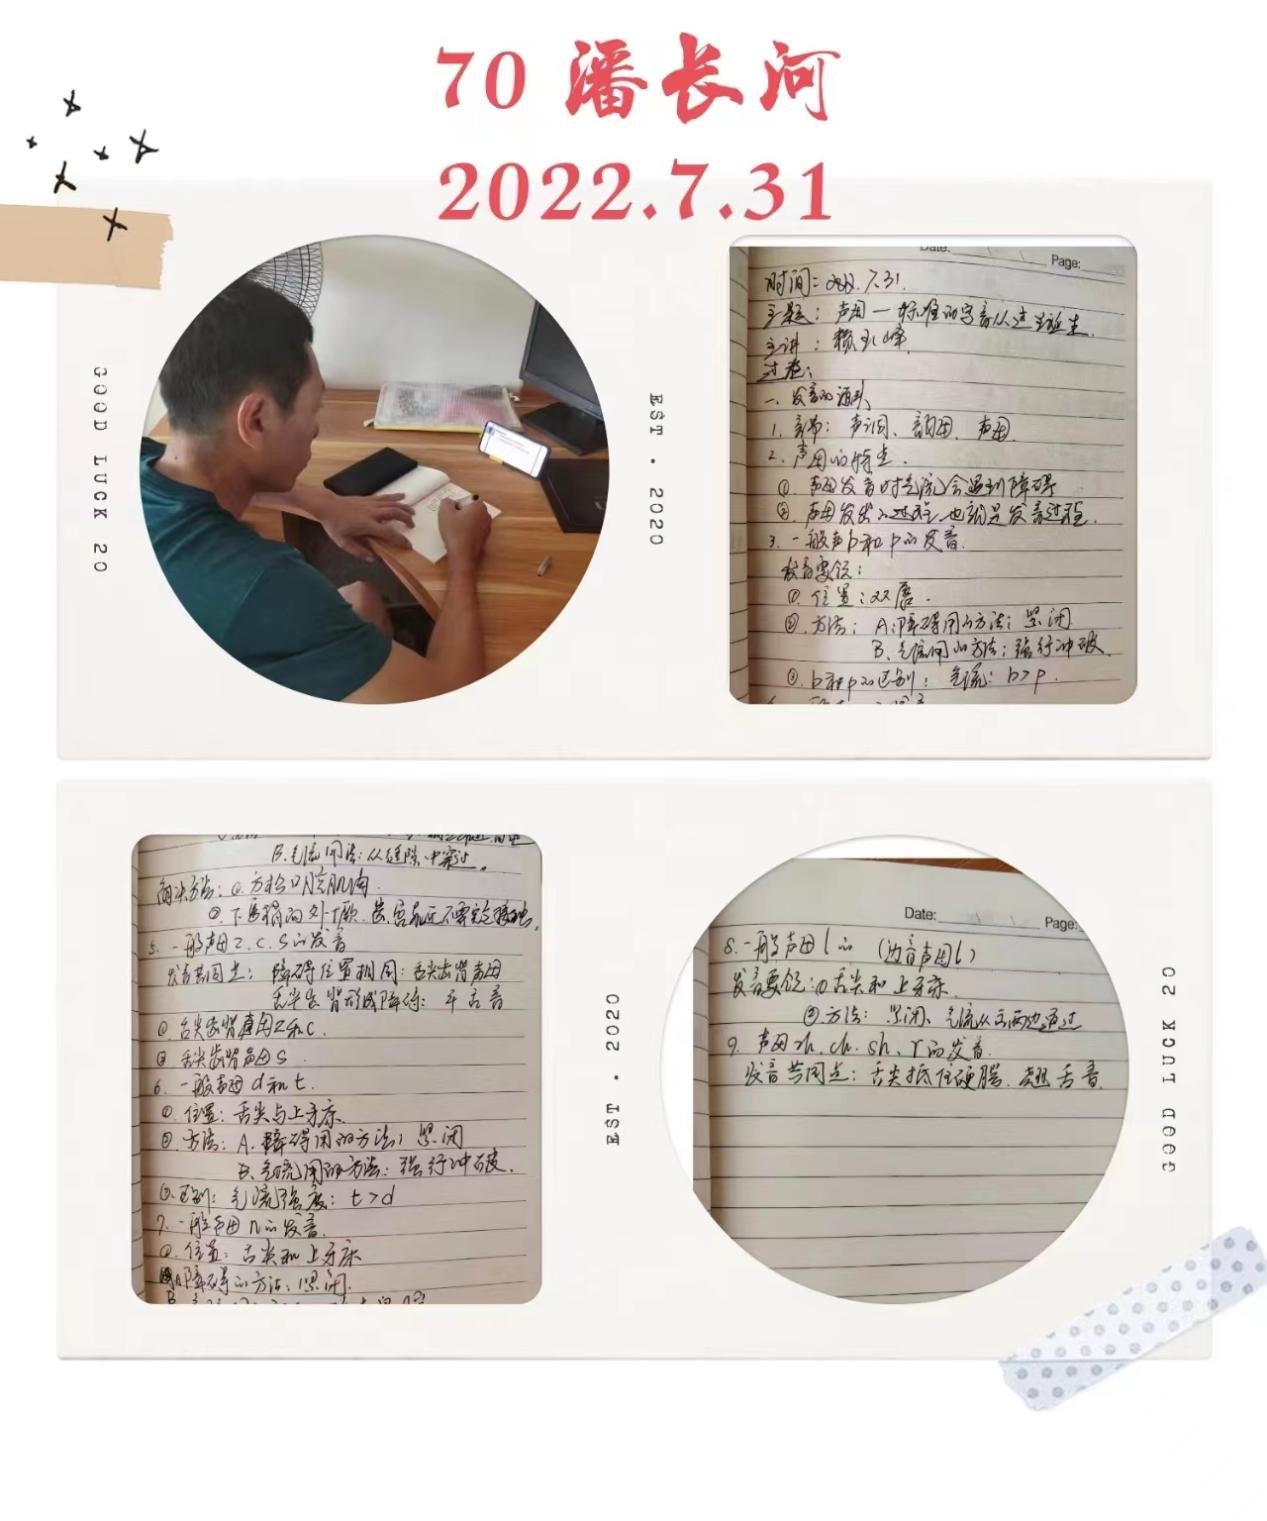 70 潘长河
2022.7.31
GOOD LUCK 20
EST. 2020
Date:
Page:
时间: 2022.7.31.
主题: 声母—标准的字音从这里诞生.
主讲: 赖玉峰.
过程:
一、发音的源头
1. 音节: 声调、韵母、声母.
2. 声母的特点.
①. 声母发音时气流会遇到障碍
②. 声母发出的过程, 也就是发音过程.
3. 一般声b和p的发音.
发音要领:
①. 位置: 双唇.
②. 方法: A: 障碍用的方法: 紧闭
B. 气流用的方法: 强行冲破.
③. b和p的区别: 气流: b>p.
B. 气流用法: 从缝隙中穿过.
解决方法: ①. 方松口腔肌肉.
②. 下唇稍向外
5. 一般声z.c.s的发音
发音共同点: 障碍位置相同: 舌尖齿背声母
舌尖齿背形成障碍: 平舌音
①. 舌尖齿背声母z和c.
②. 舌尖齿背声母s.
6. 一般声母d和t.
①. 位置: 舌尖与上牙床.
②. 方法: A. 障碍用的方法: 紧闭
B. 气流用的方法: 强行冲破.
③. 区别: 气流强度: t>d
7. 一般声母n的发音.
①. 位置: 舌尖和上牙床
A障碍的方法: 紧闭.
EST. 2020
Date:
Page:
8. 一般声母l的 (边音声母l)
发音要领: ①舌尖和上牙床.
②. 方法: 紧闭、气流从舌两边通过
9. 声母zh. ch. sh. r的发音.
发音共同点: 舌尖抵住硬腭. 翘舌音.
GOOD LUCK 20